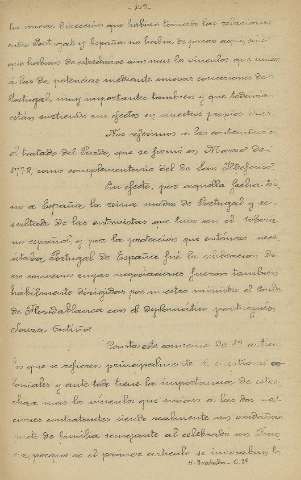 - 109 -
la nueva dirección que habían tomado las relaciones
entre Portugal y España no había de parar aquí, sino
que habían de estrecharse aún más los vínculos que unían
á las dos potencias mediante nuevas concesiones de
Portugal, muy importantes también y que todavía
están surtiendo sus efectos en nuestros propios días.
Nos referimos á las contenidas en
el tratado del Pardo, que se firmó en Marzo de
1778, como complementario del de San Ildefonso.
En efecto, por aquella fecha vino
á España, la reina madre de Portugal y re-
sultado de las entrevistas que tuvo con el
español, y por la protección que entonces nece-
sitaba Portugal de España fué la celebración de
un convenio cuyas negociaciones fueron también
hábilmente dirigidas por nuestro ministro el Conde
de Floridablanca con el diplomático portugués
Souza Cutiño.
Consta este convenio de 19 artícu-
los que se refieren principalmente á cuestiones co-
loniales y ante todo tiene la importancia de estre-
char más los vínculos que unían á las dos na-
ciones contratantes siendo realmente un verdadero
pacto de familia semejante al celebrado con Fran-
cia, porque en el primer artículo se